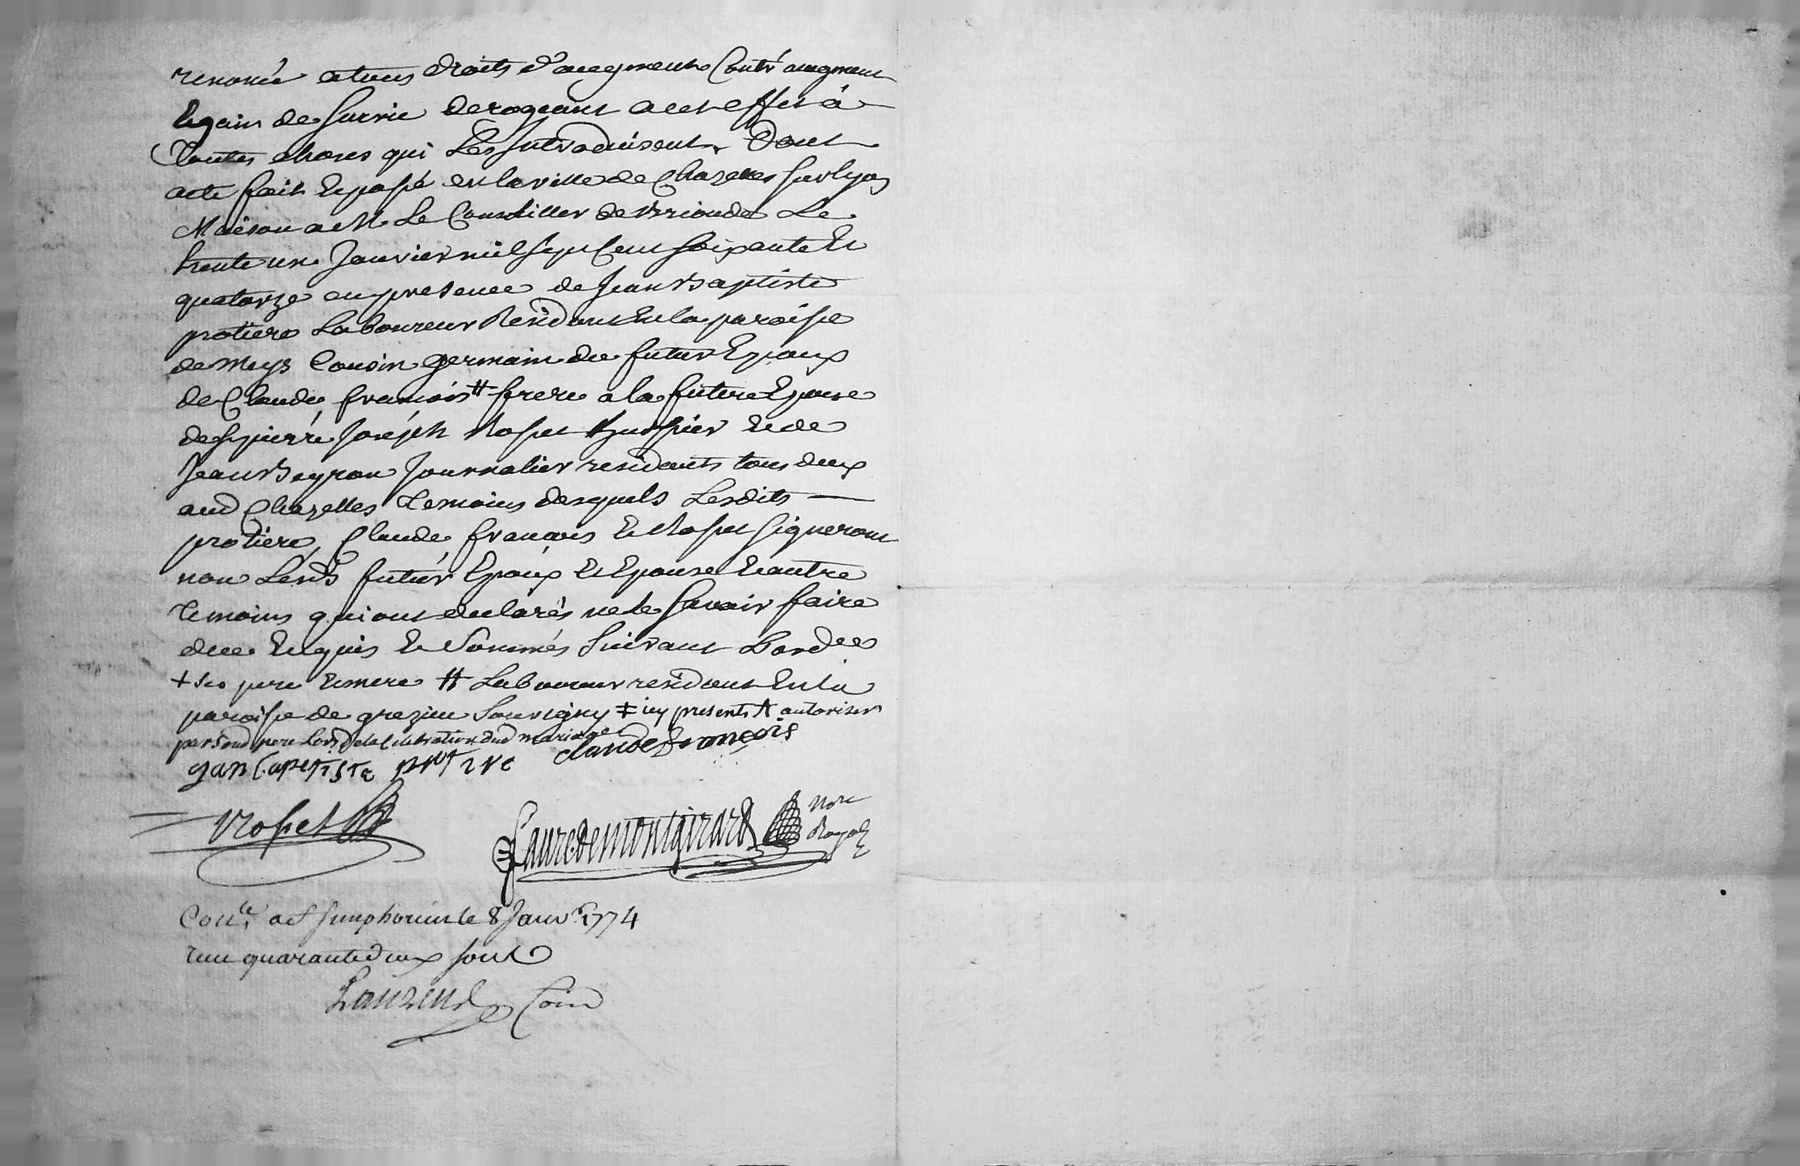 renoncé a tous droits d'augment Contr'augment
Et gain de Survie derogeant a cet effet à
Toutes choses qui Les Introduisent, Dont
acte fait Et passé en la ville de Chazelles sur lyon
Maison a M. Le Conseiller de Brioude Le
trente un Janvier mil sept Cent soixante Et
quatorze en presence de Jean Baptiste
protiere Laboureur Residant En la paroisse
de meys Cousin germain du futur Epoux
de Claude francois # frere a la future Epouse
de Sr pierre Joseph Huissier Et de
Jean Journalier residants tous deux
aud Chazelles Temoins desquels Lesdits
protiere, Claude francois Et Signeront
non Lesds futur Epoux Et Epouse Et autre
Temoins qui ont declarés ne le Savoir faire
de ce Enquis Et Sommés Suivant Lord
+ ses pere Et mere # Laboureur residant En la
paroisse de grezieu Souvigny ‡ icy presents & autoriser
par sond pere Lors de la Celebration dud mariage
claude francois
Jan Bapetiste
faure de montgirard nore
Royal
Conlé a St Simphorien le 8 Janvr 1774
recu quarante deux sous